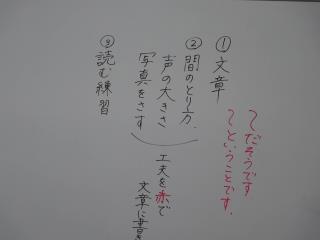 〜だそうです
〜ということです。
①文章
②間のとり方、
声の大きさ
写真をさす
工夫を赤で
文章に書き
③読む練習